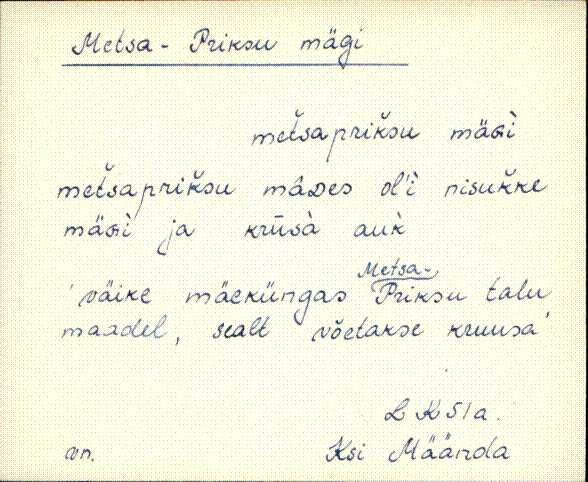 Metsa-Priksu mägi
metšapriksu mäɢì
metšapriksu mâᴅes ol'ì nisukke
mäɢì ja krūsà auk̀
'väike mäeküngas Metsa-Priksu talu
maadel, sealt võetakse kruusa'
L K 51a.
vn. Ksi Mäända